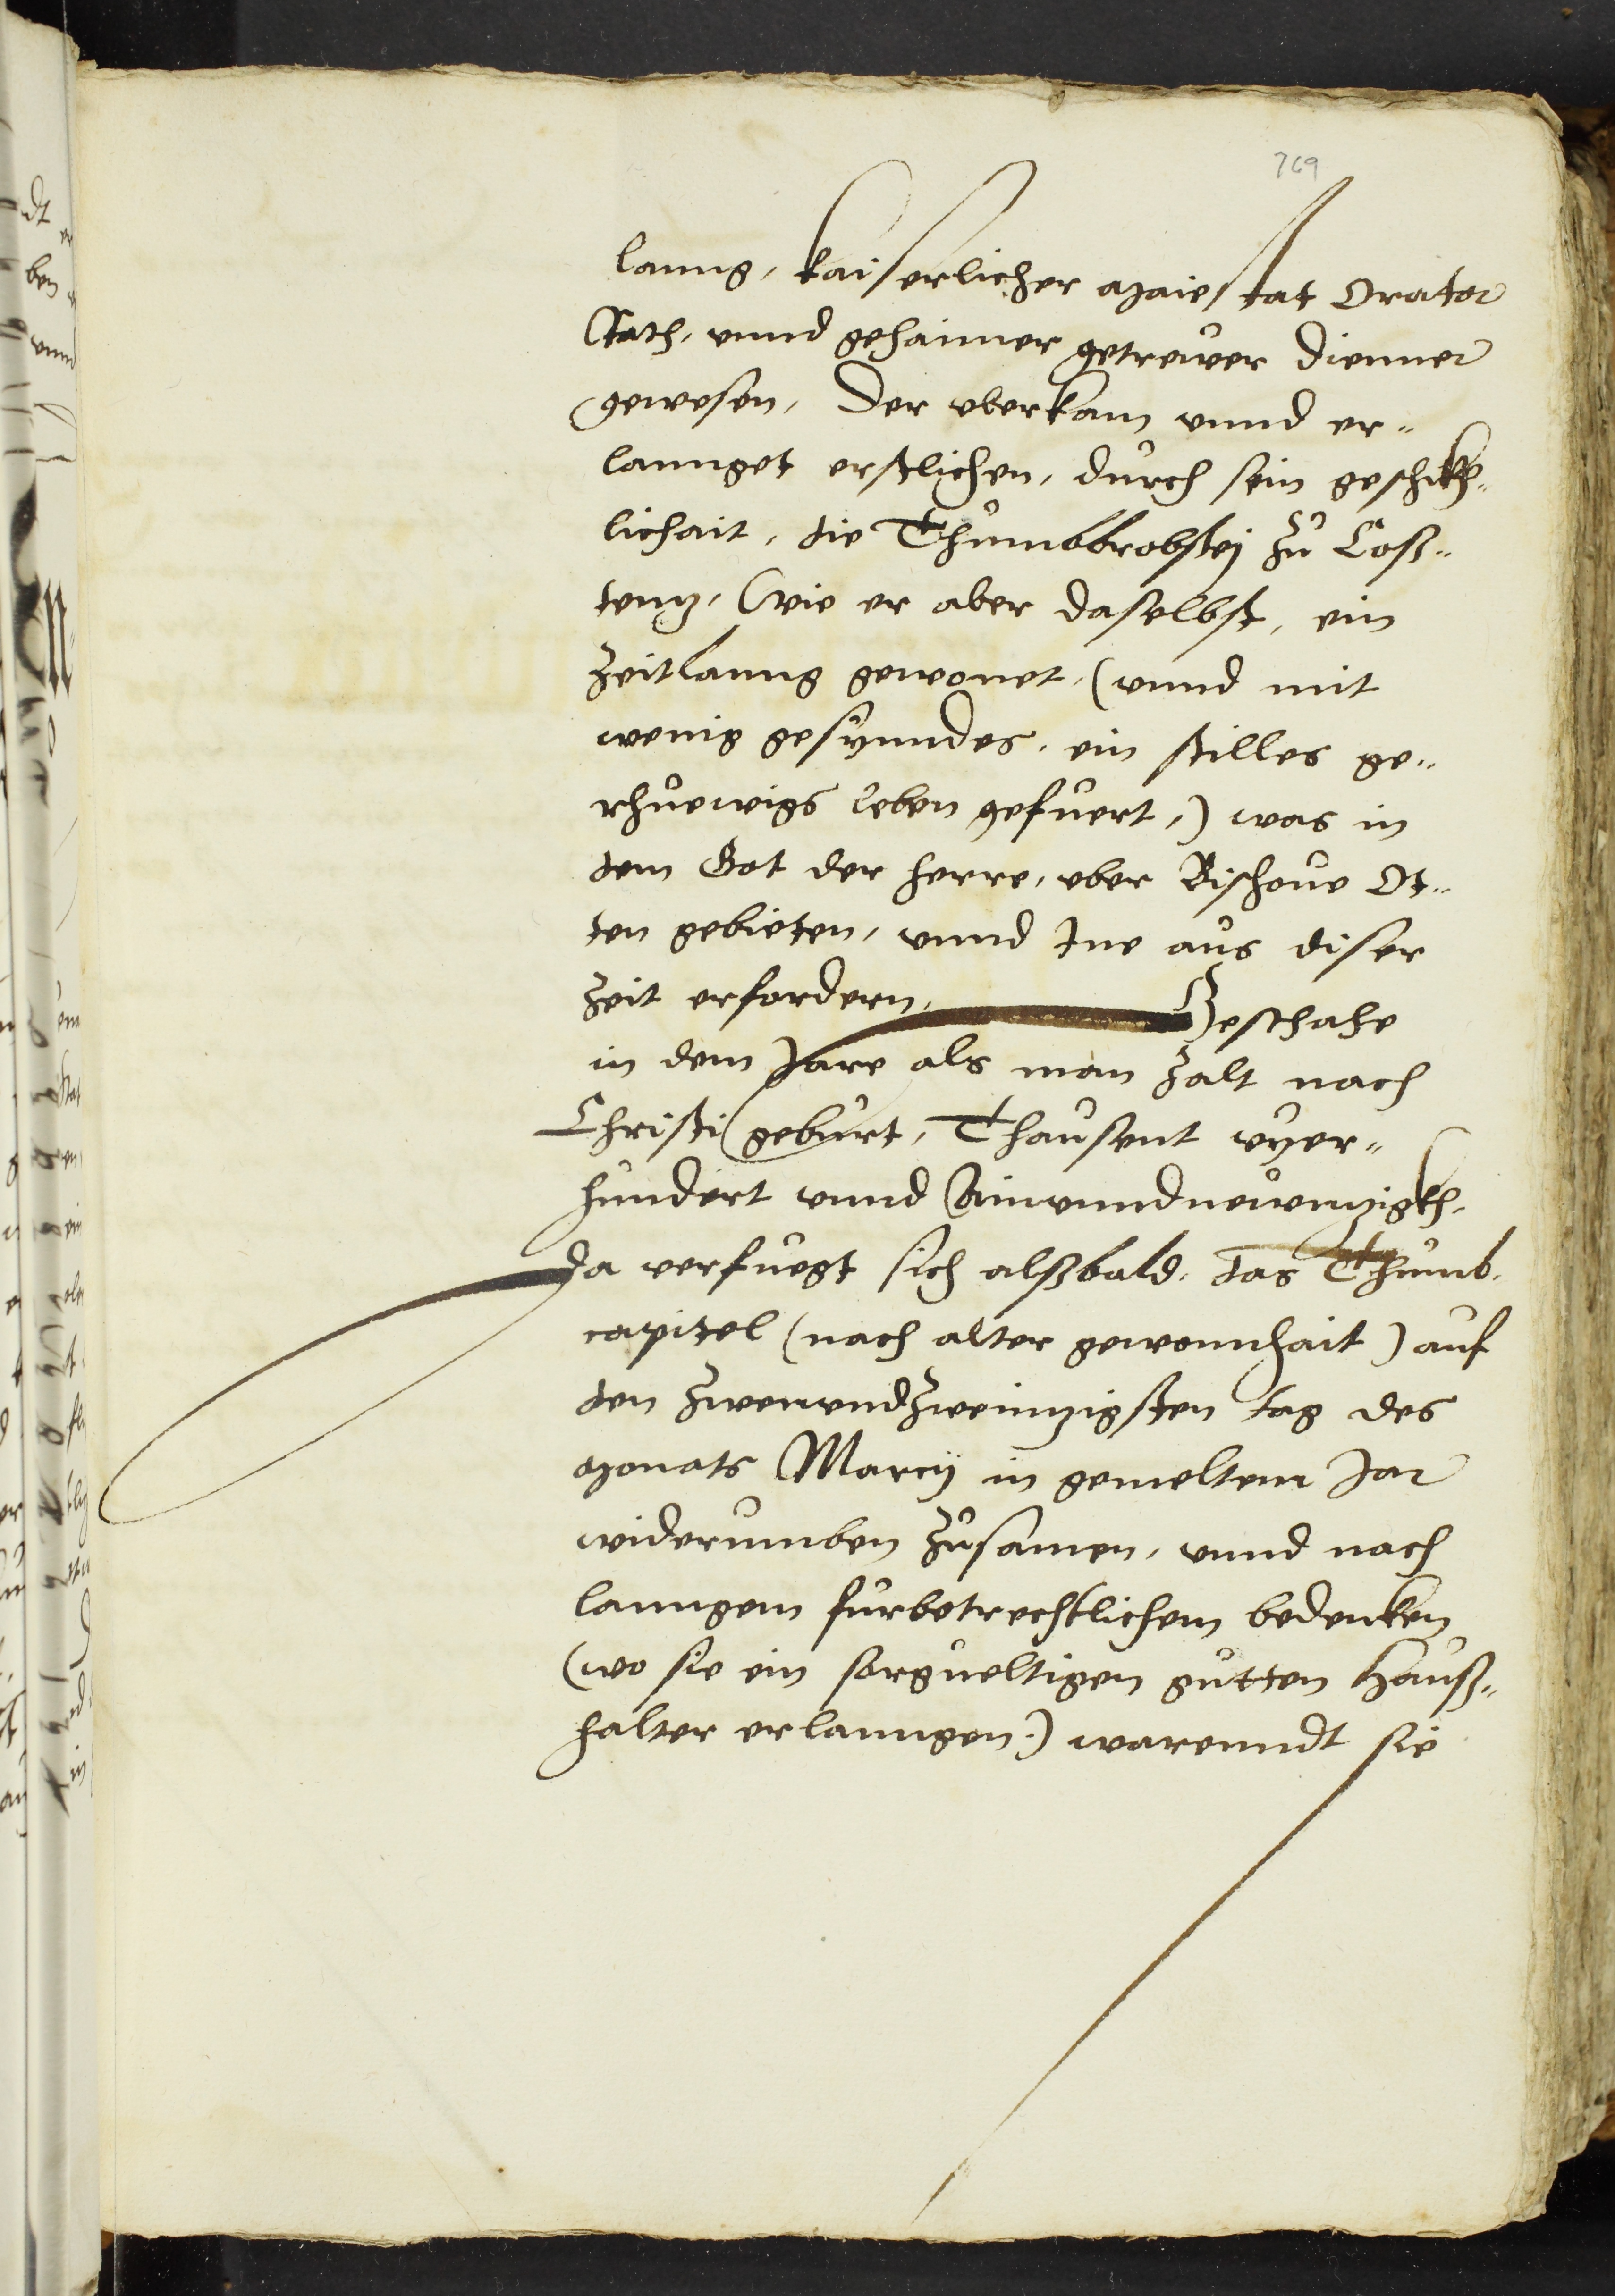 769
lanng, kaiserlicher Maiestat Orator
Rath, vnnd gehaimer getrewer dienner
gewesen, Der vberkam vnnd er-
lannget erstlichen, durch sein geschikh-
lichait, die Thumbbrobstej zu Coss-
tenz, (wie er aber daselbst, ein
zeitlanng gewonet, (vnnd mit
wenig gesynndes, ein stilles ge-
rhuewigs leben gefuert,) was in
dem Got der herre, vber Bischoue Ot-
ten gebieten, vnnd Ine aus diser
zeit erfordern, Geschahe
in dem Jare als man zalt nach
Christi geburt, Thausent vyer-
hundert vnnd Ainvnndnewnzigkh,
Da verfuegt sich alßbald, das Thumb-
capitel (nach alter gewonnhait) auf
den zwenvndzweinzigsten tag des
Monats Marcij in gemeltem Jar
widerumben zusamen, vnnd nach
lanngem furbetrechtlichem bedenken
(wo sie ein sorgueltigen gutten Hauß-
halter erlanngen:) warenndt sie